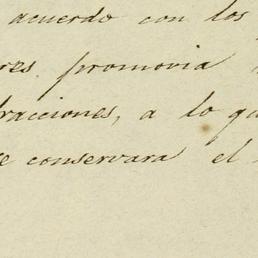 acuerdo con los
res promovia
fracciones, a lo qu
se conservara el